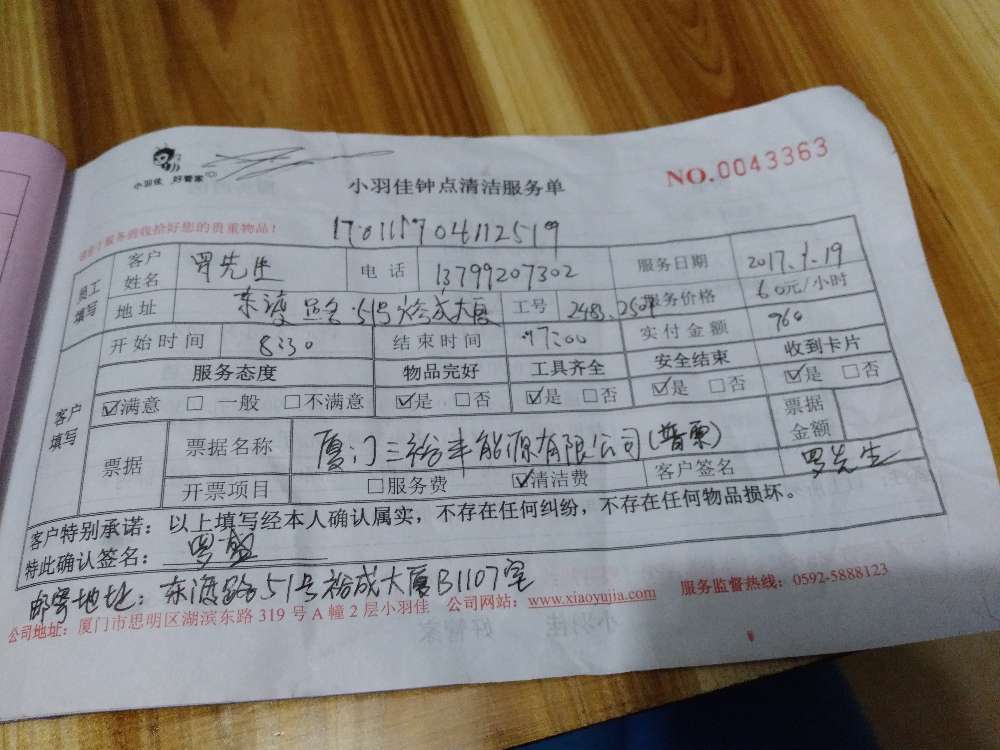 小羽佳 好管家
小羽佳钟点清洁服务单
NO.0043363
服务前收拾好您的贵重物品!
17011704112519
员工填写 客户姓名 罗先生 电话 13799207302 服务日期 2017.1.19
地址 东渡路51号裕成大厦 工号 2483、2509 服务价格 60元/小时
客户填写 开始时间 8:30 结束时间 17:00 实付金额 960
服务态度 物品完好 工具齐全 安全结束 收到卡片
☑满意 □一般 □不满意 ☑是 □否 ☑是 □否 ☑是 □否 ☑是 □否
票据 票据名称 厦门三裕丰能源有限公司(普票) 票据金额
开票项目 □服务费 ☑清洁费 客户签名 罗先生
客户特别承诺:以上填写经本人确认属实,不存在任何纠纷,不存在任何物品损坏。
特此确认签名: 罗
邮寄地址:东渡路51号裕成大厦B1107室
公司地址:厦门市思明区湖滨东路319号A幢2层小羽佳 公司网站:www.xiaoyujia.com 服务监督热线:0592-5888123